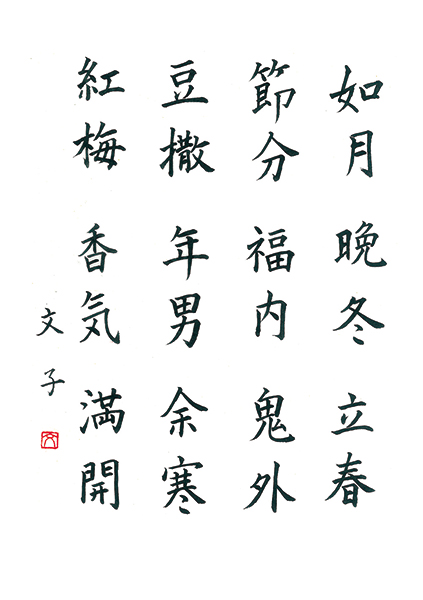 如月 晩冬 立春
節分 福内 鬼外
豆撒 年男 余寒
紅梅 香気 満開
文子
文